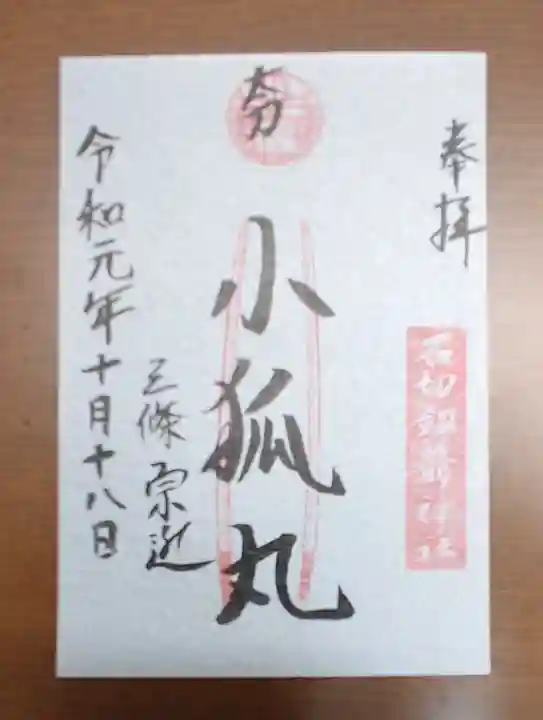 奉拝
石切劔箭神社
夯
小狐丸
三條宗近
令和元年十月十八日